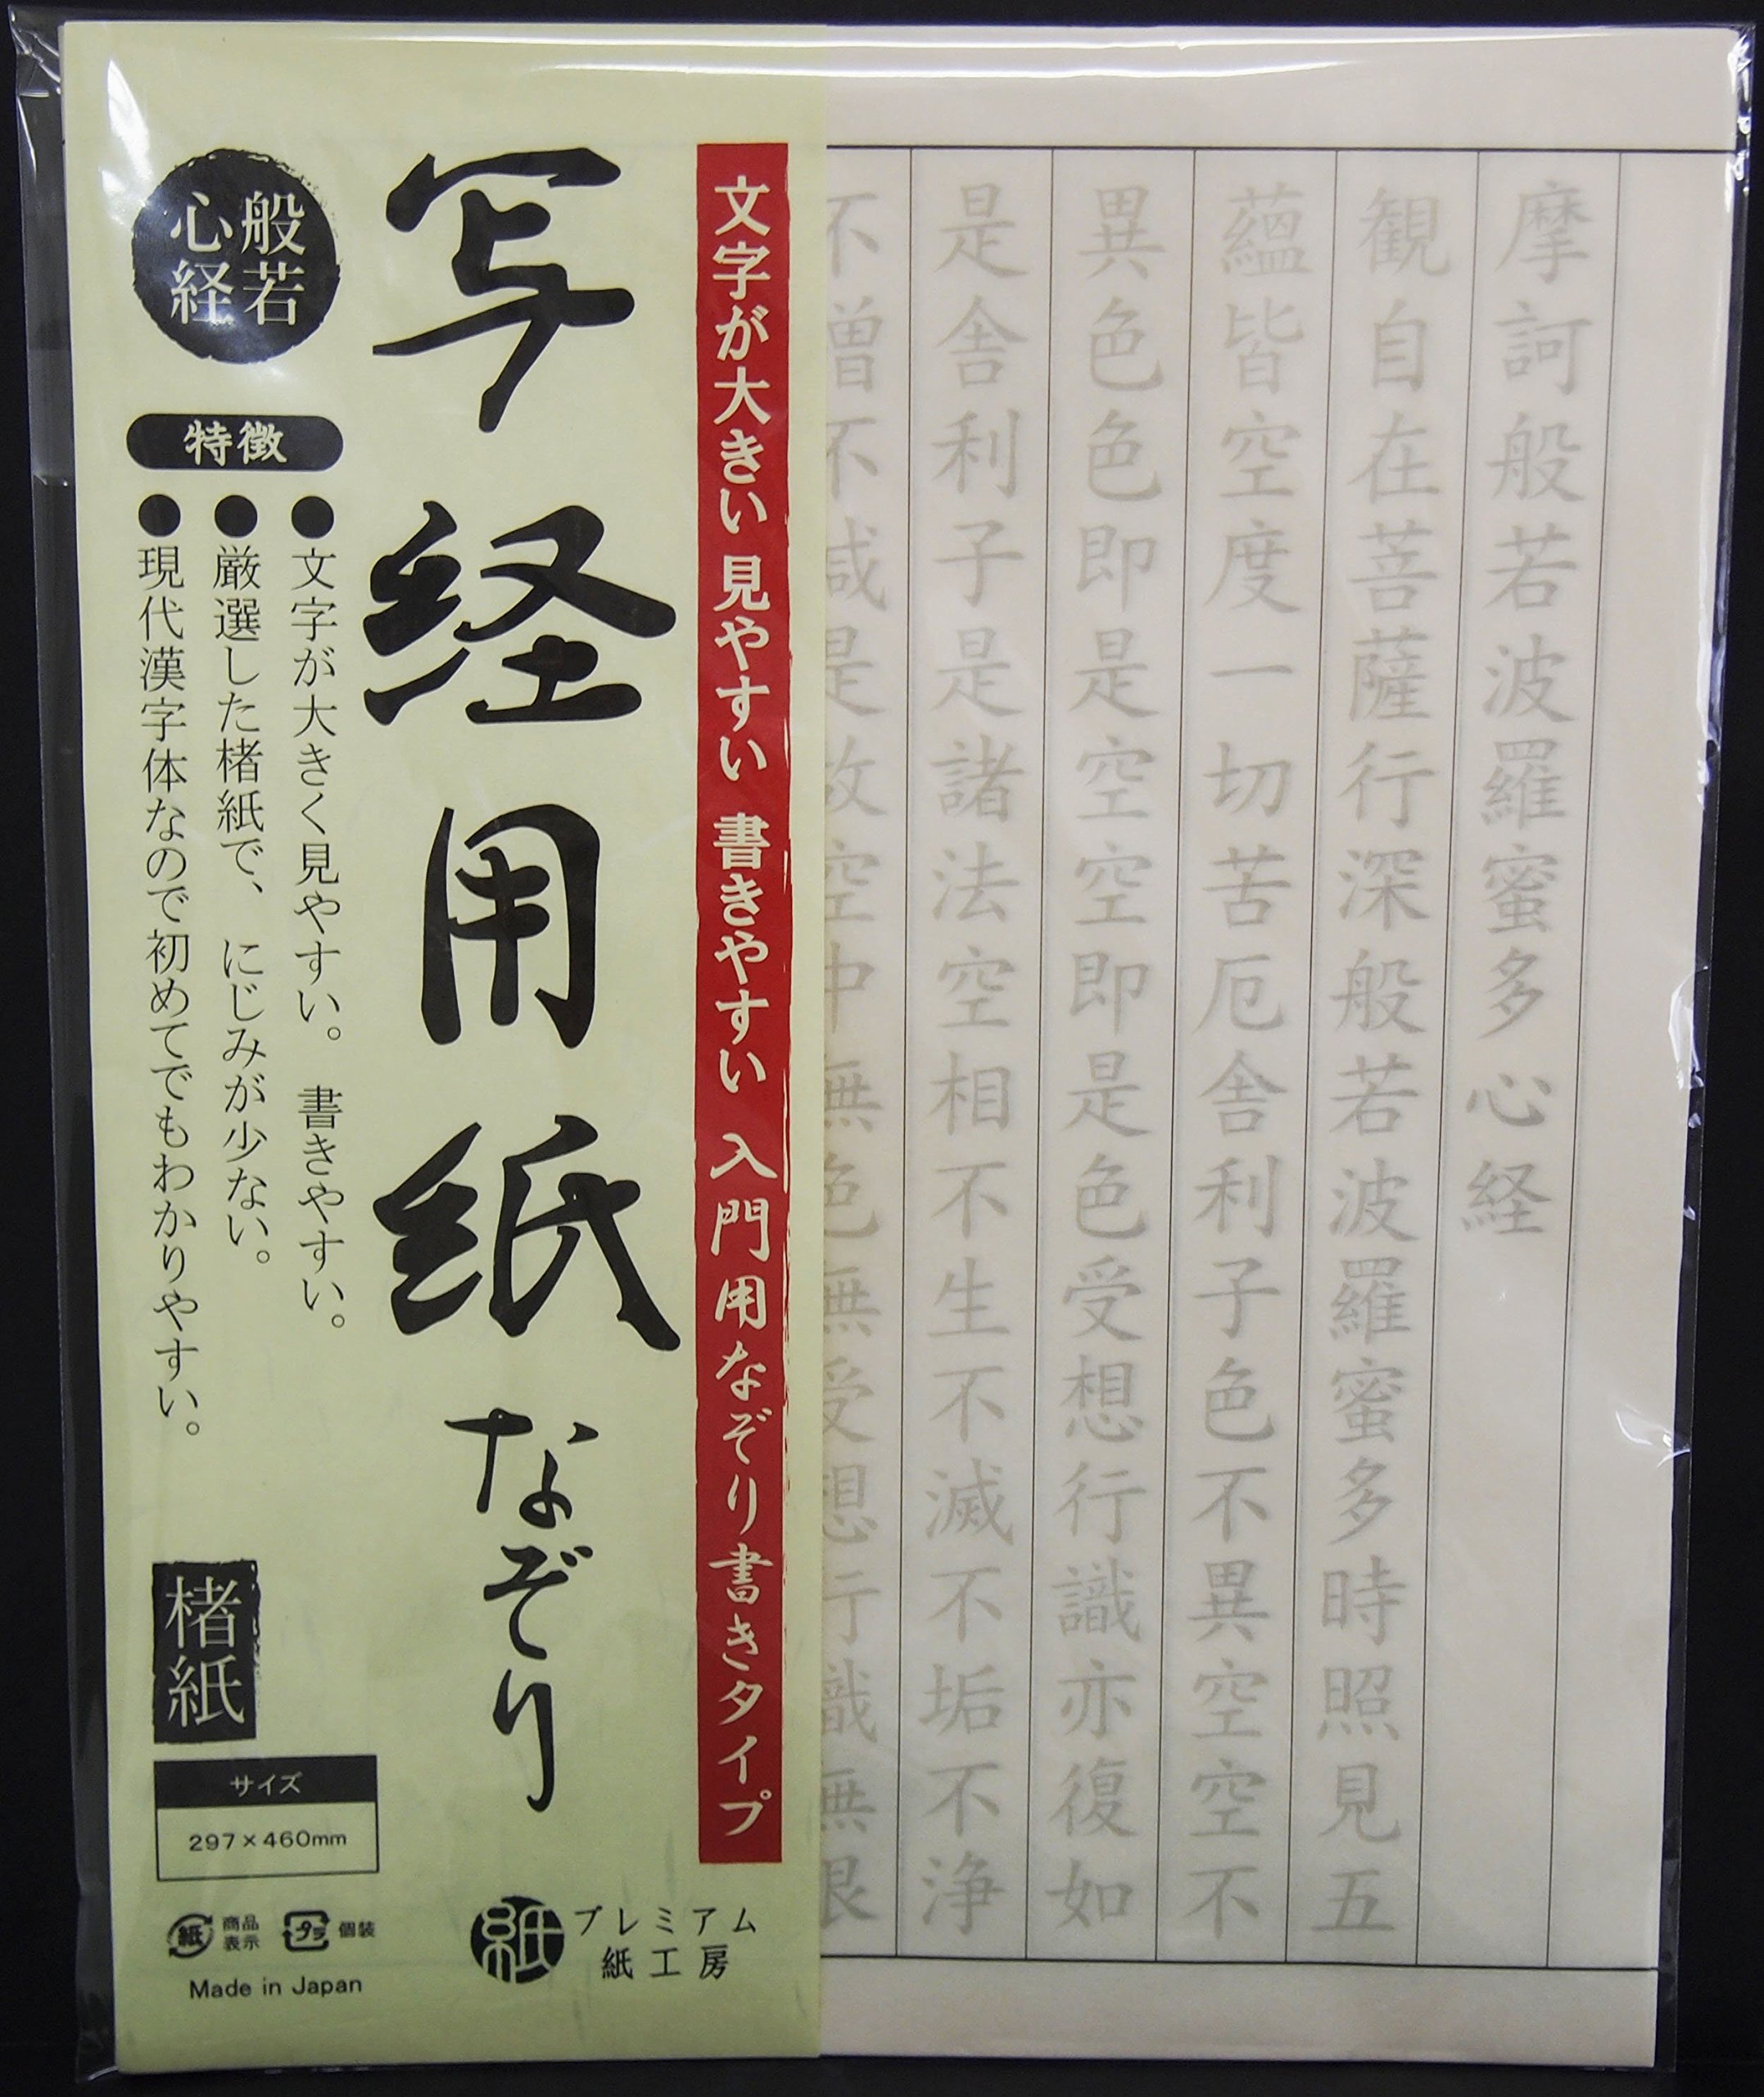 摩訶般若波羅蜜多心経
観自在菩薩行深般若波羅蜜多時照見五
蘊皆空度一切苦厄舎利子色不異空空不
異色色即是空空即是色受想行識亦復如
是舎利子是諸法空相不生不滅不垢不浄
不増不減是故空中無色無受想行識無眼
文字が大きい 見やすい 書きやすい 入門用なぞり書きタイプ
写経用紙なぞり
般若
心経
特徴
●文字が大きく見やすい。書きやすい。
●厳選した楮紙で、にじみが少ない。
●現代漢字体なので初めてでもわかりやすい。
楮紙
サイズ
297×460mm
紙
商品
表示
プラ
個装
Made in Japan
紙
プレミアム
紙工房